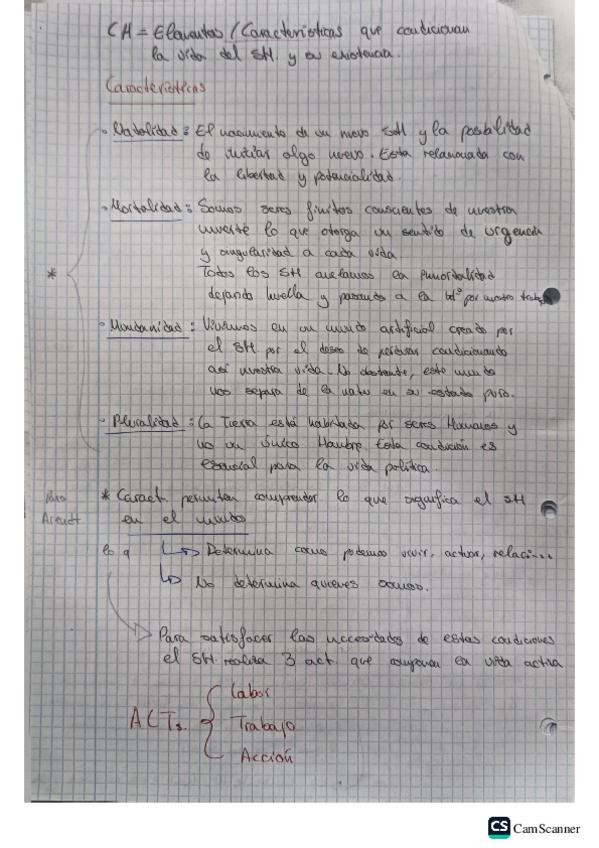 CH = Elementos / Características que condicionan
la vida del SH. y su existencia.
Características
· Natalidad: El nacimiento de un nuevo SH y la posibilidad
de iniciar algo nuevo. Esta relacionada con
la libertad y potencialidad.
· Mortalidad: Somos seres finitos conscientes de nuestra
muerte lo que otorga un sentido de urgencia
y singularidad a cada vida
Todos los SH anhelamos la inmortalidad
dejando huella y pasando a la htª por nuestro trabajo
*
· Mundanidad: Vivimos en un mundo artificial creado por
el SH por el deseo de perdurar condicionando
así nuestra vida. No obstante, este mundo
nos separa de la natu en su estado puro.
· Pluralidad: La Tierra está habitada por seres Humanos y
no un único Hombre. Esta condición es
esencial para la vida política.
Para
Arendt
* Caract permiten comprender lo que significa el SH
en el mundo
lo q
↳ Determina como podemos vivir, actuar, relaci...
↳ No determina quienes somos.
Para satisfacer las necesidades de estas condiciones
el SH realiza 3 act. que componen la vida activa
ACTs.
Labor
Trabajo
Acción
CS CamScanner